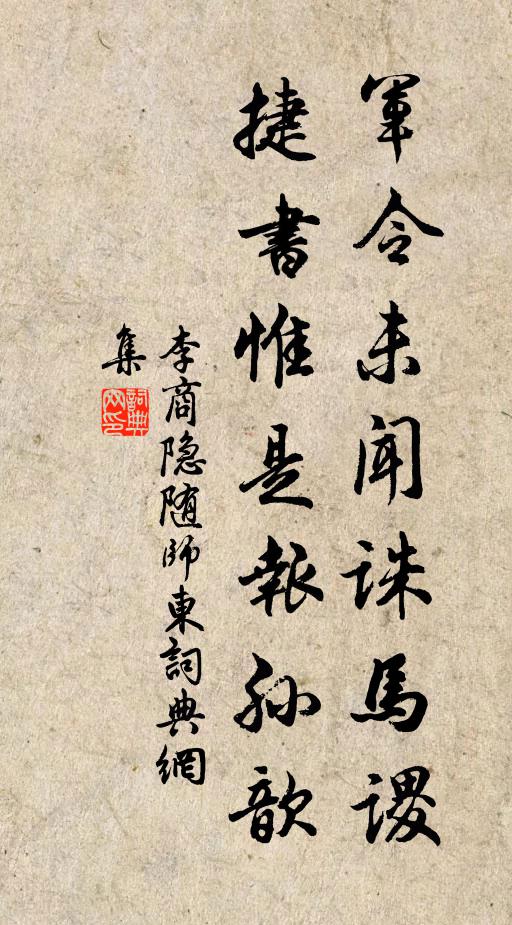 軍令未聞誅馬謖
捷書惟是報孙歆
李商隐随師東詞典網
集
詞典网印